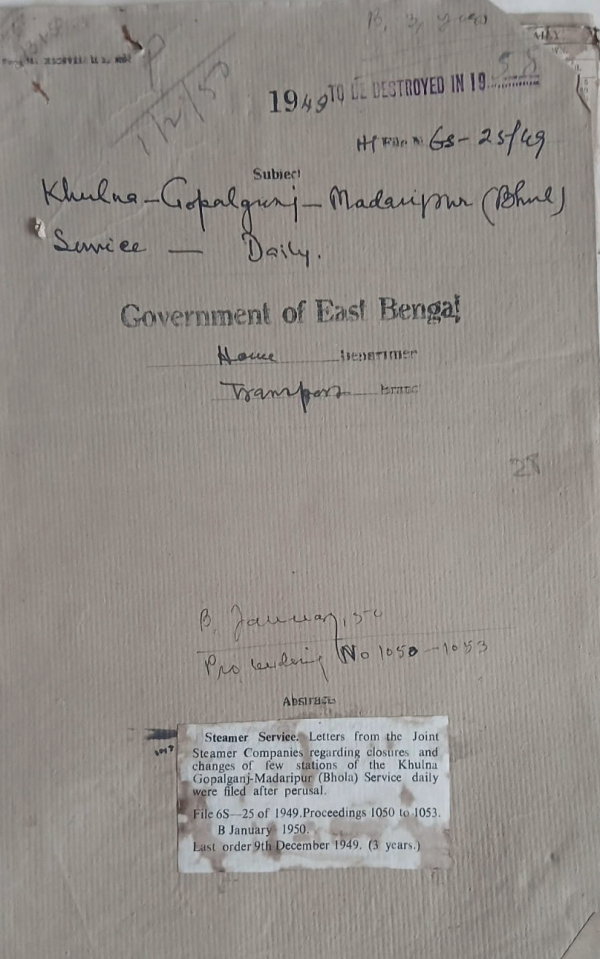 B, 3, years
1/2/50
1949 TO BE DESTROYED IN 19
File No 6S-25/49
Subject
Khulna-Gopalgunj-Madaripur (Bhul)
Service — Daily.
Government of East Bengal
Home Departmen
Transport Branc
28
B. January, 50
Proceeding No 1050-1053
Abstract
Steamer Service. Letters from the Joint
Steamer Companies regarding closures and
changes of few stations of the Khulna
Gopalganj-Madaripur (Bhola) Service daily
were filed after perusal.
File 6S—25 of 1949. Proceedings 1050 to 1053.
B January 1950.
Last order 9th December 1949. (3 years.)